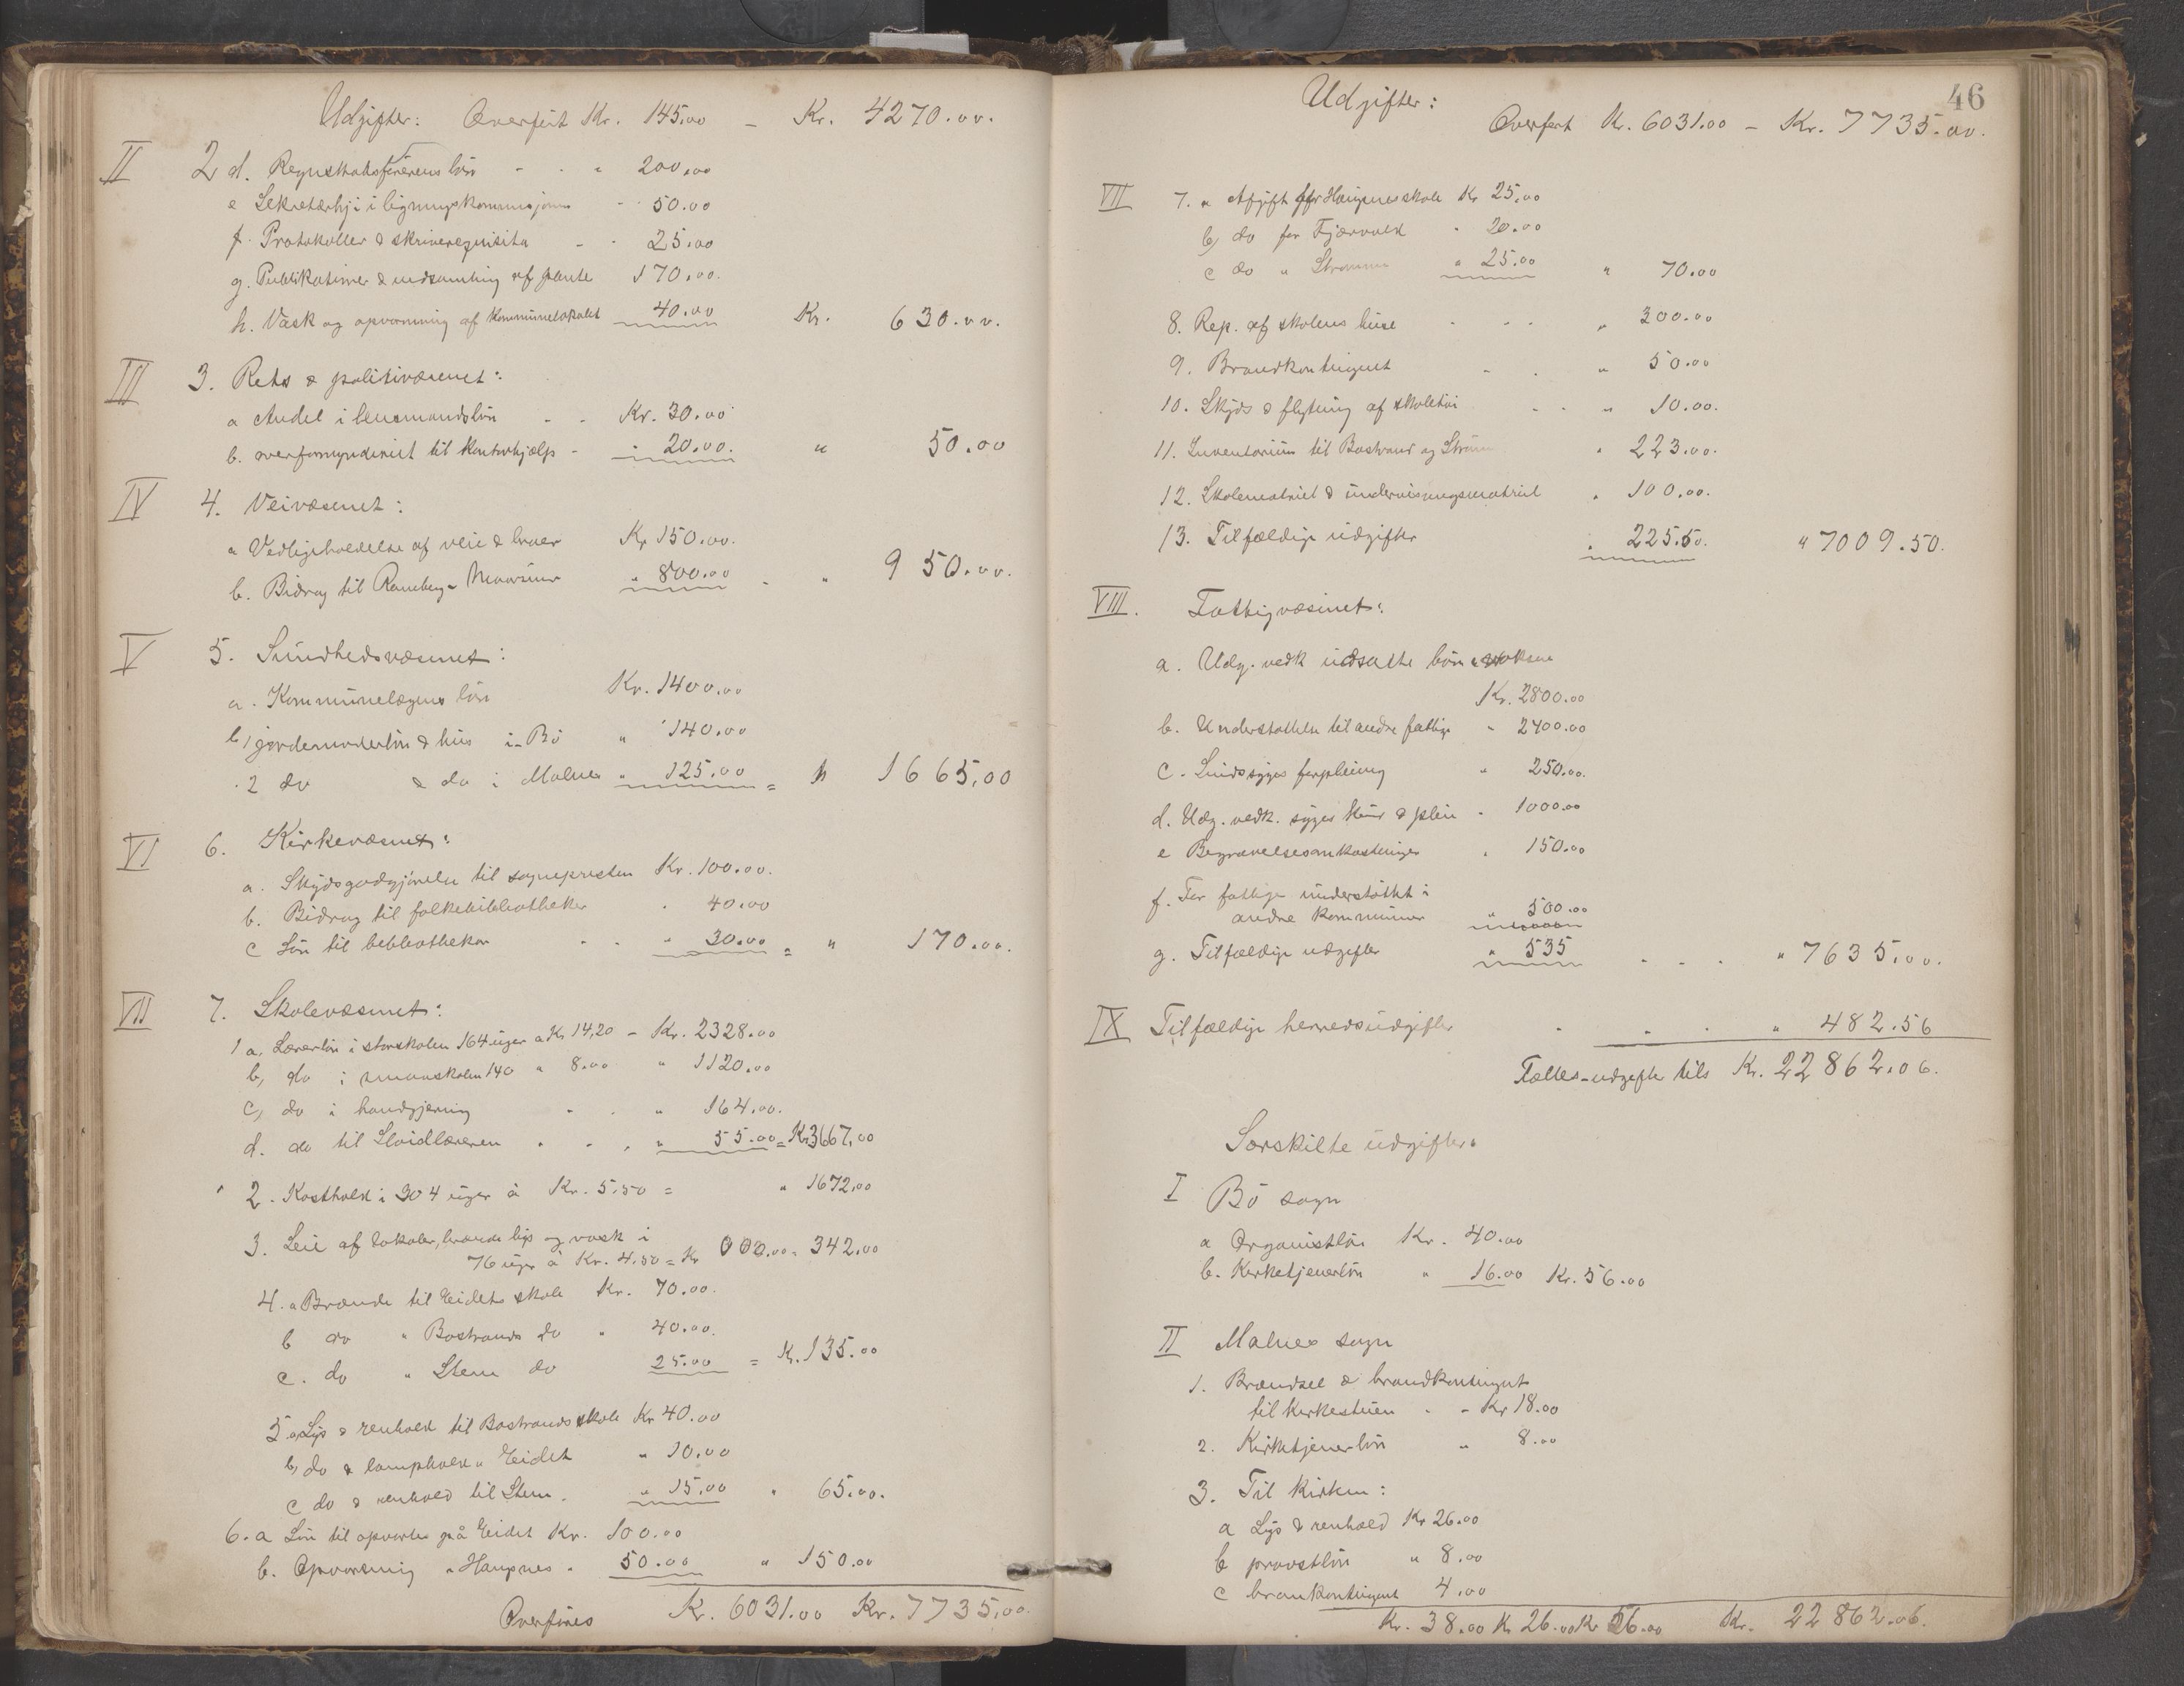 Udgifter: Overført Kr. 145.00 – Kr. 4270.00.
II 2 d. Regnskabsførerens løn - - " 200.00
e Sekretærhj i ligningskommisjonen - - 50.00
f. Protokoller & skriverequisita - - 25.00
g. Publikationer & indsamling af 170.00.
h. Vask og opvarmning af kommunelokalet 40.00 Kr. 630.00.
III 3. Rets & politivæsenet:
a Andel i lensmandsløn - - Kr. 30.00
b. overformynderiet til kontorhjælp - " 20.00. " 50.00
IV 4. Veivæsenet:
a Vedligeholdelse af veie & broer Kr 150.00.
b. Bidrag til Ramberg - " 800.00 - " 950.00.
V 5. Sundhedsvæsenet:
a. Kommunelægens løn Kr. 1400.00
b, 1 jordemoderløn & hus i Bø " 140.00
2 do & do i Malnes " 125.00 = " 1665,00
VI 6. Kirkevæsenet:
a. Skydsgodtgjørelse til sognepresten Kr. 100.00.
b. Bidrag til folkebibliotheker " 40.00
c Løn til bebliothekar - - " 30.00 = " 170.00.
VII 7. Skolevæsenet:
1 a, Lærerløn i storskolen 164 uger a Kr 14,20 – Kr. 2328.00
b, do i smaaskolen 140 " 8.00 " 1120.00
c, do i haandgjerning - - " 164.00.
d. do til Sløidlæreren - - , " 55.00 = Kr 3667,00
2. Kosthold i 304 uger à Kr. 5.50 = " 1672,00
3. Leie af lokaler, brænde lys og vask i
76 uger à Kr. 4.50 = Kr 000.00 = 342,00
4. a Brænde til Eidets skole Kr. 70.00.
b do " Bostrands do " 40.00.
c. do " Steine do 25.00 = Kr. 135.00
5 a, Lys & renhold til Bostrands skole Kr 40.00
b, do & lampehold " Eidet " 10.00
c do & renhold til Steine. " 15,00 " 65.00.
6. a Løn til opvarter på Eidet Kr. 100.00
b. Opvarmning " Haugnes " 50.00 " 150.00
Overføres Kr. 6031.00 Kr. 7735,00.
46
Udgifter:
Overført Kr. 6031.00 – Kr. 7735.00.
VII 7. a Afgift for Haugnes skole Kr 25.00
b, do for Fjærvold " 20.00
c do " Straume " 25.00 " 70.00
8. Rep. af skolens huse - - - " 300.00
9. Brandkontingent - . " 50.00
10. Skyds & flytning af skoletøi - - " 10.00.
11. Inventarium til Bostrand og Straum " 223.00.
12. Skolemateriel & undervisningsmateriel " 100.00.
13. Tilfældige udgifter " 225.50. " 7009.50.
VIII. Fattigvæsenet:
a. Udg. vedk udsatte børn & voksne
Kr. 2800.00
b. Understøttelse til andre fattige " 2400.00
c. Sindssyges forpleining " 250.00.
d. Udg. vedk. syges kur & pleie " 1000.00
e Begravelsesomkostninger " 150.00
f. For fattige understøttet i
andre kommuner " 500.00
g. Tilfældige udgifter " 535 - - - " 7635,00.
IX Tilfældige herredsudgifter - - - " 482.56
Fælles-udgifter tils Kr. 22862.06.
Særskilte udgifter.
I Bø sogn
a Organistløn Kr. 40.00
b. Kirketjenerløn " 16.00 Kr. 56.00
II Malnes sogn
1. Brændsel & brandkontingent
til kirkestuen - - Kr 18.00
2. Kirketjenerløn " 8.00
3. Til kirken:
a Lys & renhold Kr 26.00
b provstløn " 8.00
c brankontingent 4.00
Kr. 38.00 Kr 26.00 Kr 56.00 Kr. 22862.06.